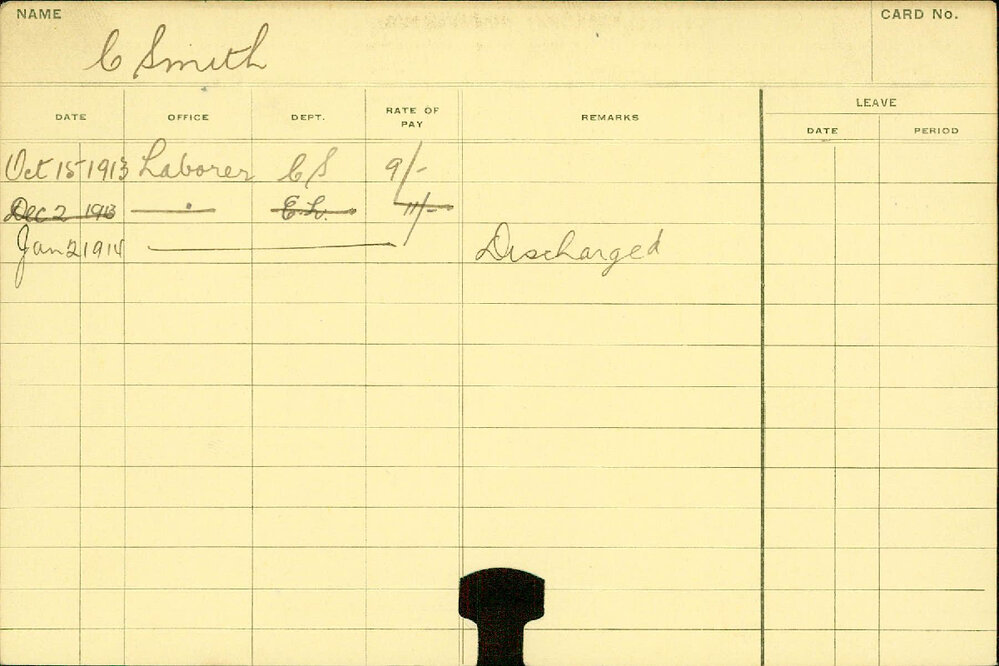 NAME CARD No.
C Smith
DATE OFFICE DEPT. RATE OF PAY REMARKS LEAVE
DATE PERIOD
Oct 15 1913 Laborer C S 9/-
Dec 2 1913 " E.L. 11/-
Jan 2 1914 Discharged